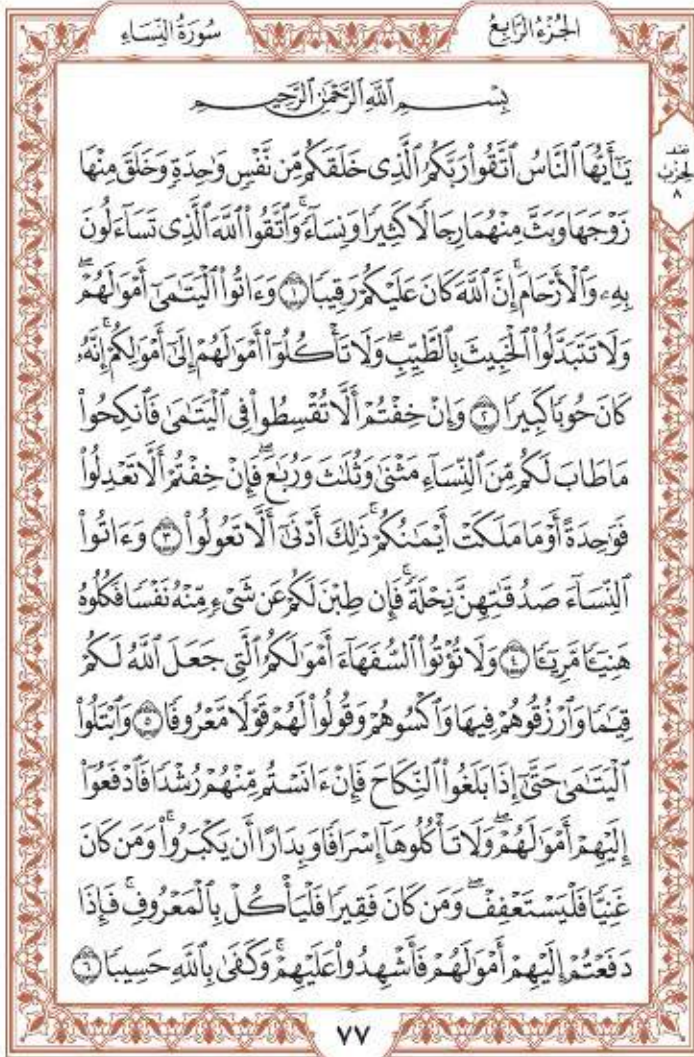 الجُزْءُ الرَّابِعُ
سُورَةُ النِّسَاءِ
بِسْمِ ٱللَّهِ ٱلرَّحْمَٰنِ ٱلرَّحِيمِ
يَـٰٓأَيُّهَا ٱلنَّاسُ ٱتَّقُواْ رَبَّكُمُ ٱلَّذِى خَلَقَكُم مِّن نَّفْسٍ وَٰحِدَةٍ وَخَلَقَ مِنْهَا
زَوْجَهَا وَبَثَّ مِنْهُمَا رِجَالًا كَثِيرًا وَنِسَآءً ۚ وَٱتَّقُواْ ٱللَّهَ ٱلَّذِى تَسَآءَلُونَ
بِهِۦ وَٱلْأَرْحَامَ ۚ إِنَّ ٱللَّهَ كَانَ عَلَيْكُمْ رَقِيبًا ١ وَءَاتُواْ ٱلْيَتَـٰمَىٰٓ أَمْوَٰلَهُمْ ۖ
وَلَا تَتَبَدَّلُواْ ٱلْخَبِيثَ بِٱلطَّيِّبِ ۖ وَلَا تَأْكُلُوٓاْ أَمْوَٰلَهُمْ إِلَىٰٓ أَمْوَٰلِكُمْ ۚ إِنَّهُۥ
كَانَ حُوبًا كَبِيرًا ٢ وَإِنْ خِفْتُمْ أَلَّا تُقْسِطُواْ فِى ٱلْيَتَـٰمَىٰ فَٱنكِحُواْ
مَا طَابَ لَكُم مِّنَ ٱلنِّسَآءِ مَثْنَىٰ وَثُلَـٰثَ وَرُبَـٰعَ ۖ فَإِنْ خِفْتُمْ أَلَّا تَعْدِلُواْ
فَوَٰحِدَةً أَوْ مَا مَلَكَتْ أَيْمَـٰنُكُمْ ۚ ذَٰلِكَ أَدْنَىٰٓ أَلَّا تَعُولُواْ ٣ وَءَاتُواْ
ٱلنِّسَآءَ صَدُقَـٰتِهِنَّ نِحْلَةً ۚ فَإِن طِبْنَ لَكُمْ عَن شَىْءٍ مِّنْهُ نَفْسًا فَكُلُوهُ
هَنِيٓـًٔا مَّرِيٓـًٔا ٤ وَلَا تُؤْتُواْ ٱلسُّفَهَآءَ أَمْوَٰلَكُمُ ٱلَّتِى جَعَلَ ٱللَّهُ لَكُمْ
قِيَـٰمًا وَٱرْزُقُوهُمْ فِيهَا وَٱكْسُوهُمْ وَقُولُواْ لَهُمْ قَوْلًا مَّعْرُوفًا ٥ وَٱبْتَلُواْ
ٱلْيَتَـٰمَىٰ حَتَّىٰٓ إِذَا بَلَغُواْ ٱلنِّكَاحَ فَإِنْ ءَانَسْتُم مِّنْهُمْ رُشْدًا فَٱدْفَعُوٓاْ
إِلَيْهِمْ أَمْوَٰلَهُمْ ۖ وَلَا تَأْكُلُوهَآ إِسْرَافًا وَبِدَارًا أَن يَكْبَرُواْ ۚ وَمَن كَانَ
غَنِيًّا فَلْيَسْتَعْفِفْ ۖ وَمَن كَانَ فَقِيرًا فَلْيَأْكُلْ بِٱلْمَعْرُوفِ ۚ فَإِذَا
دَفَعْتُمْ إِلَيْهِمْ أَمْوَٰلَهُمْ فَأَشْهِدُواْ عَلَيْهِمْ ۚ وَكَفَىٰ بِٱللَّهِ حَسِيبًا ٦
٧٧
٨